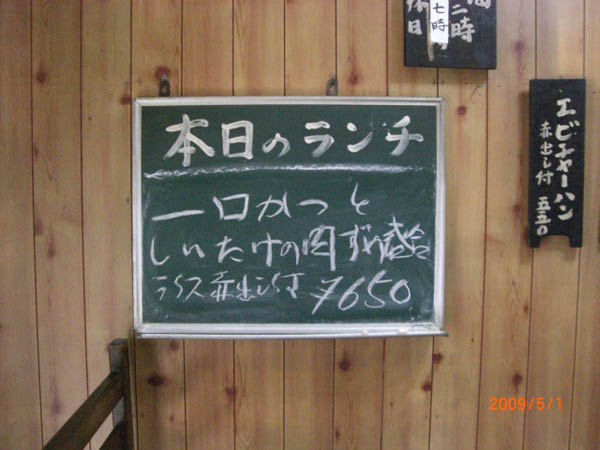 本日のランチ
一口かつと
しいたけの肉ずめ盛合
ライス赤出し付 ¥650
エビチャーハン
赤出し付 五五〇
七時
二時
休日
2009/5/1